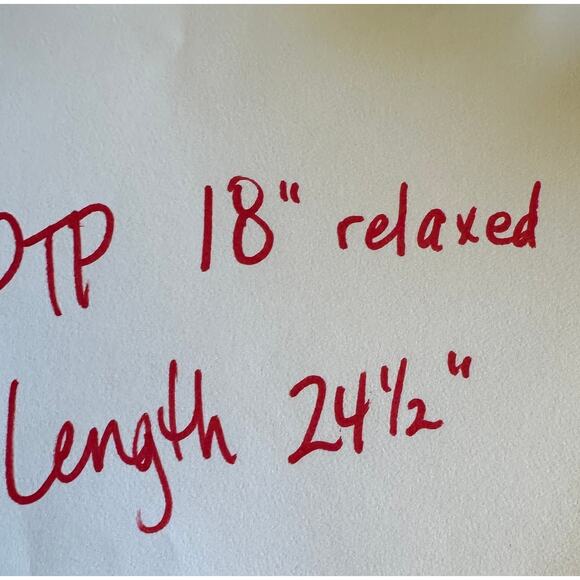 PTP 18" relaxed
Length 24 1/2"